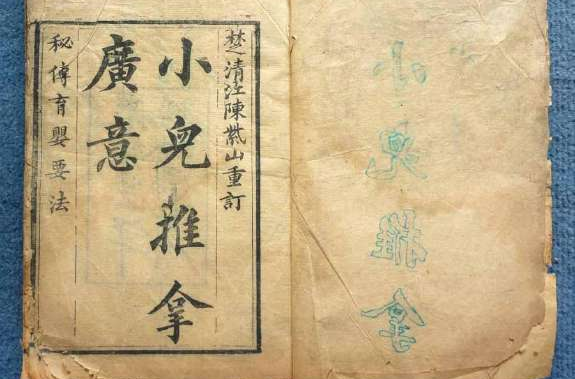 小兒推拿
楚清江陳紫山重訂
小兒推拿
廣意
秘傳育嬰要法